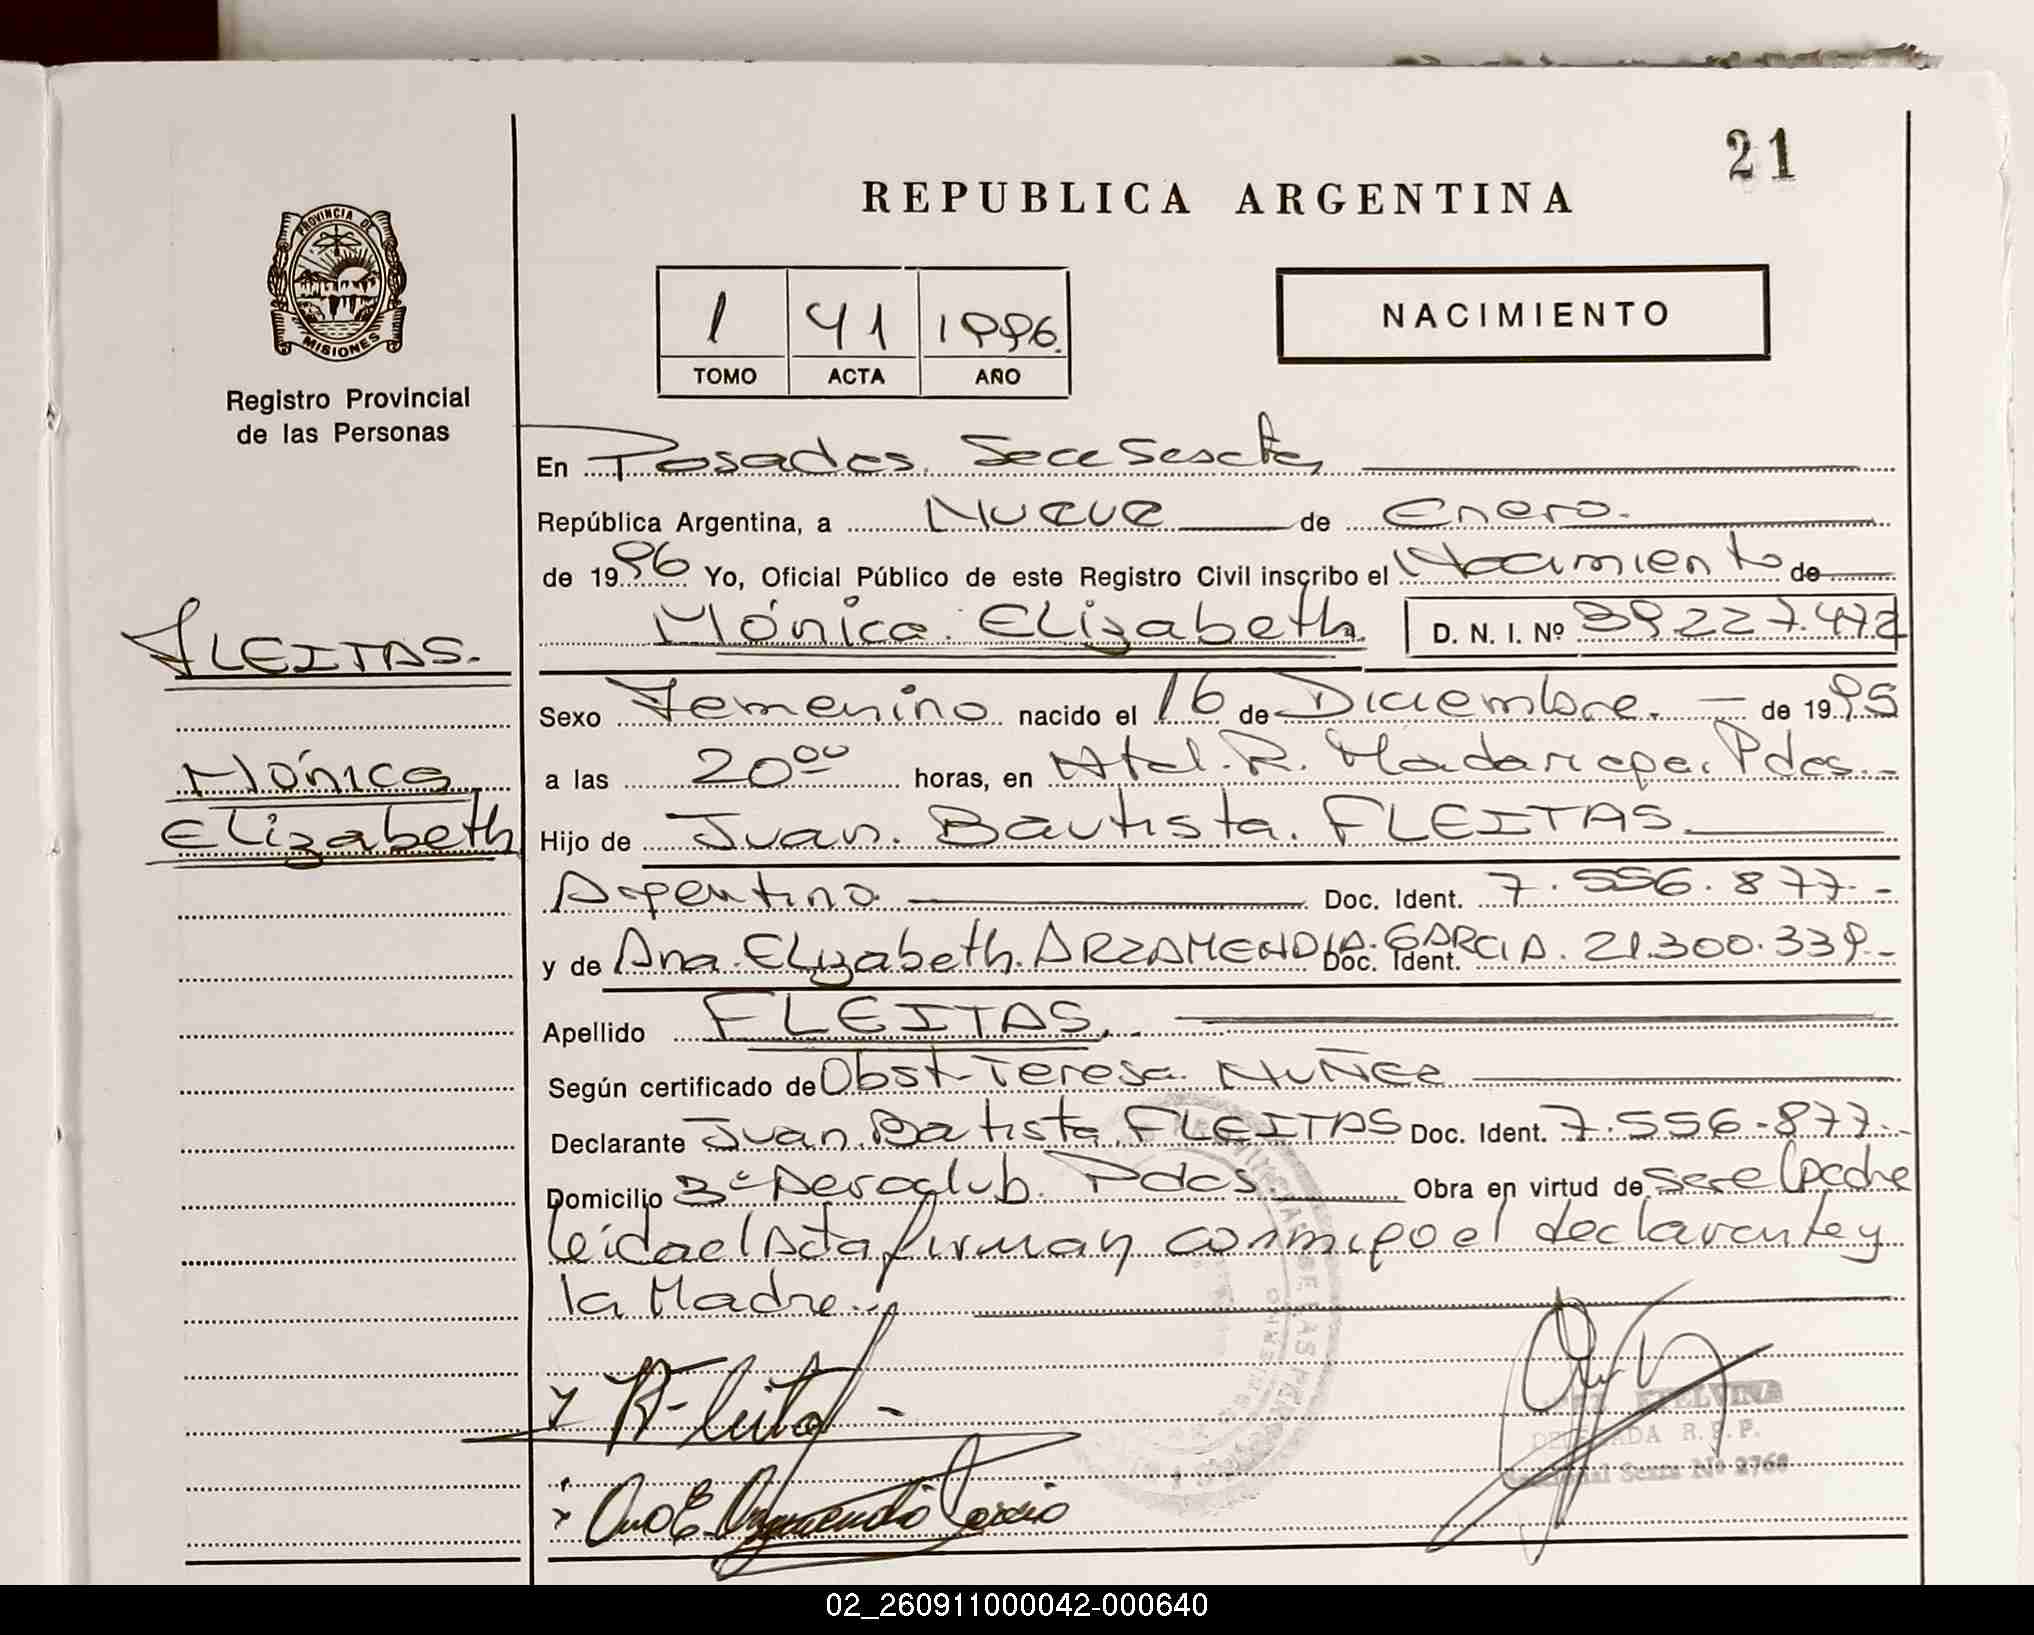 21
REPUBLICA ARGENTINA
PROVINCIA DE
MISIONES
Registro Provincial
de las Personas
1 41 1996.
TOMO ACTA AÑO
NACIMIENTO
En Posadas. Secc Sexta
República Argentina, a Nueve de Enero.
de 1996 Yo, Oficial Público de este Registro Civil inscribo el Nacimiento de
Mónica. Elizabeth. D. N. I. Nº 39.227.472
FLEITAS.
Mónica
Elizabeth
Sexo Femenino nacido el 16 de Diciembre. — de 1995
a las 20⁰⁰ horas, en Htal. R. Madariaga. Pdas.-
Hijo de Juan. Bautista. FLEITAS.
Argentino Doc. Ident. 7.556.877.-
y de Ana. Elizabeth. ARZAMENDIA. GARCIA. Doc. Ident. 21.300.339.-
Apellido FLEITAS.
Según certificado de Obst. Teresa. NUÑEZ
Declarante Juan. Batista. FLEITAS Doc. Ident. 7.556.877.-
Domicilio 3º Aeroclub. Pdas. Obra en virtud de ser el padre
leida el Acta firman conmigo el declarante y
la Madre.
Ana E. Arzamendia Garcia
DELEGADA R.P.P.
Seccional Sexta Nº 2768
02_260911000042-000640